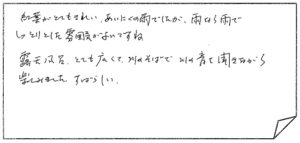 紅葉がとてもきれい、あいにくの雨でしたが、雨なら雨で
しっとりとした雰囲気がよいですね
露天風呂、とても広くて、川のそばで 川の音を聞きながら
楽しみました すばらしい。